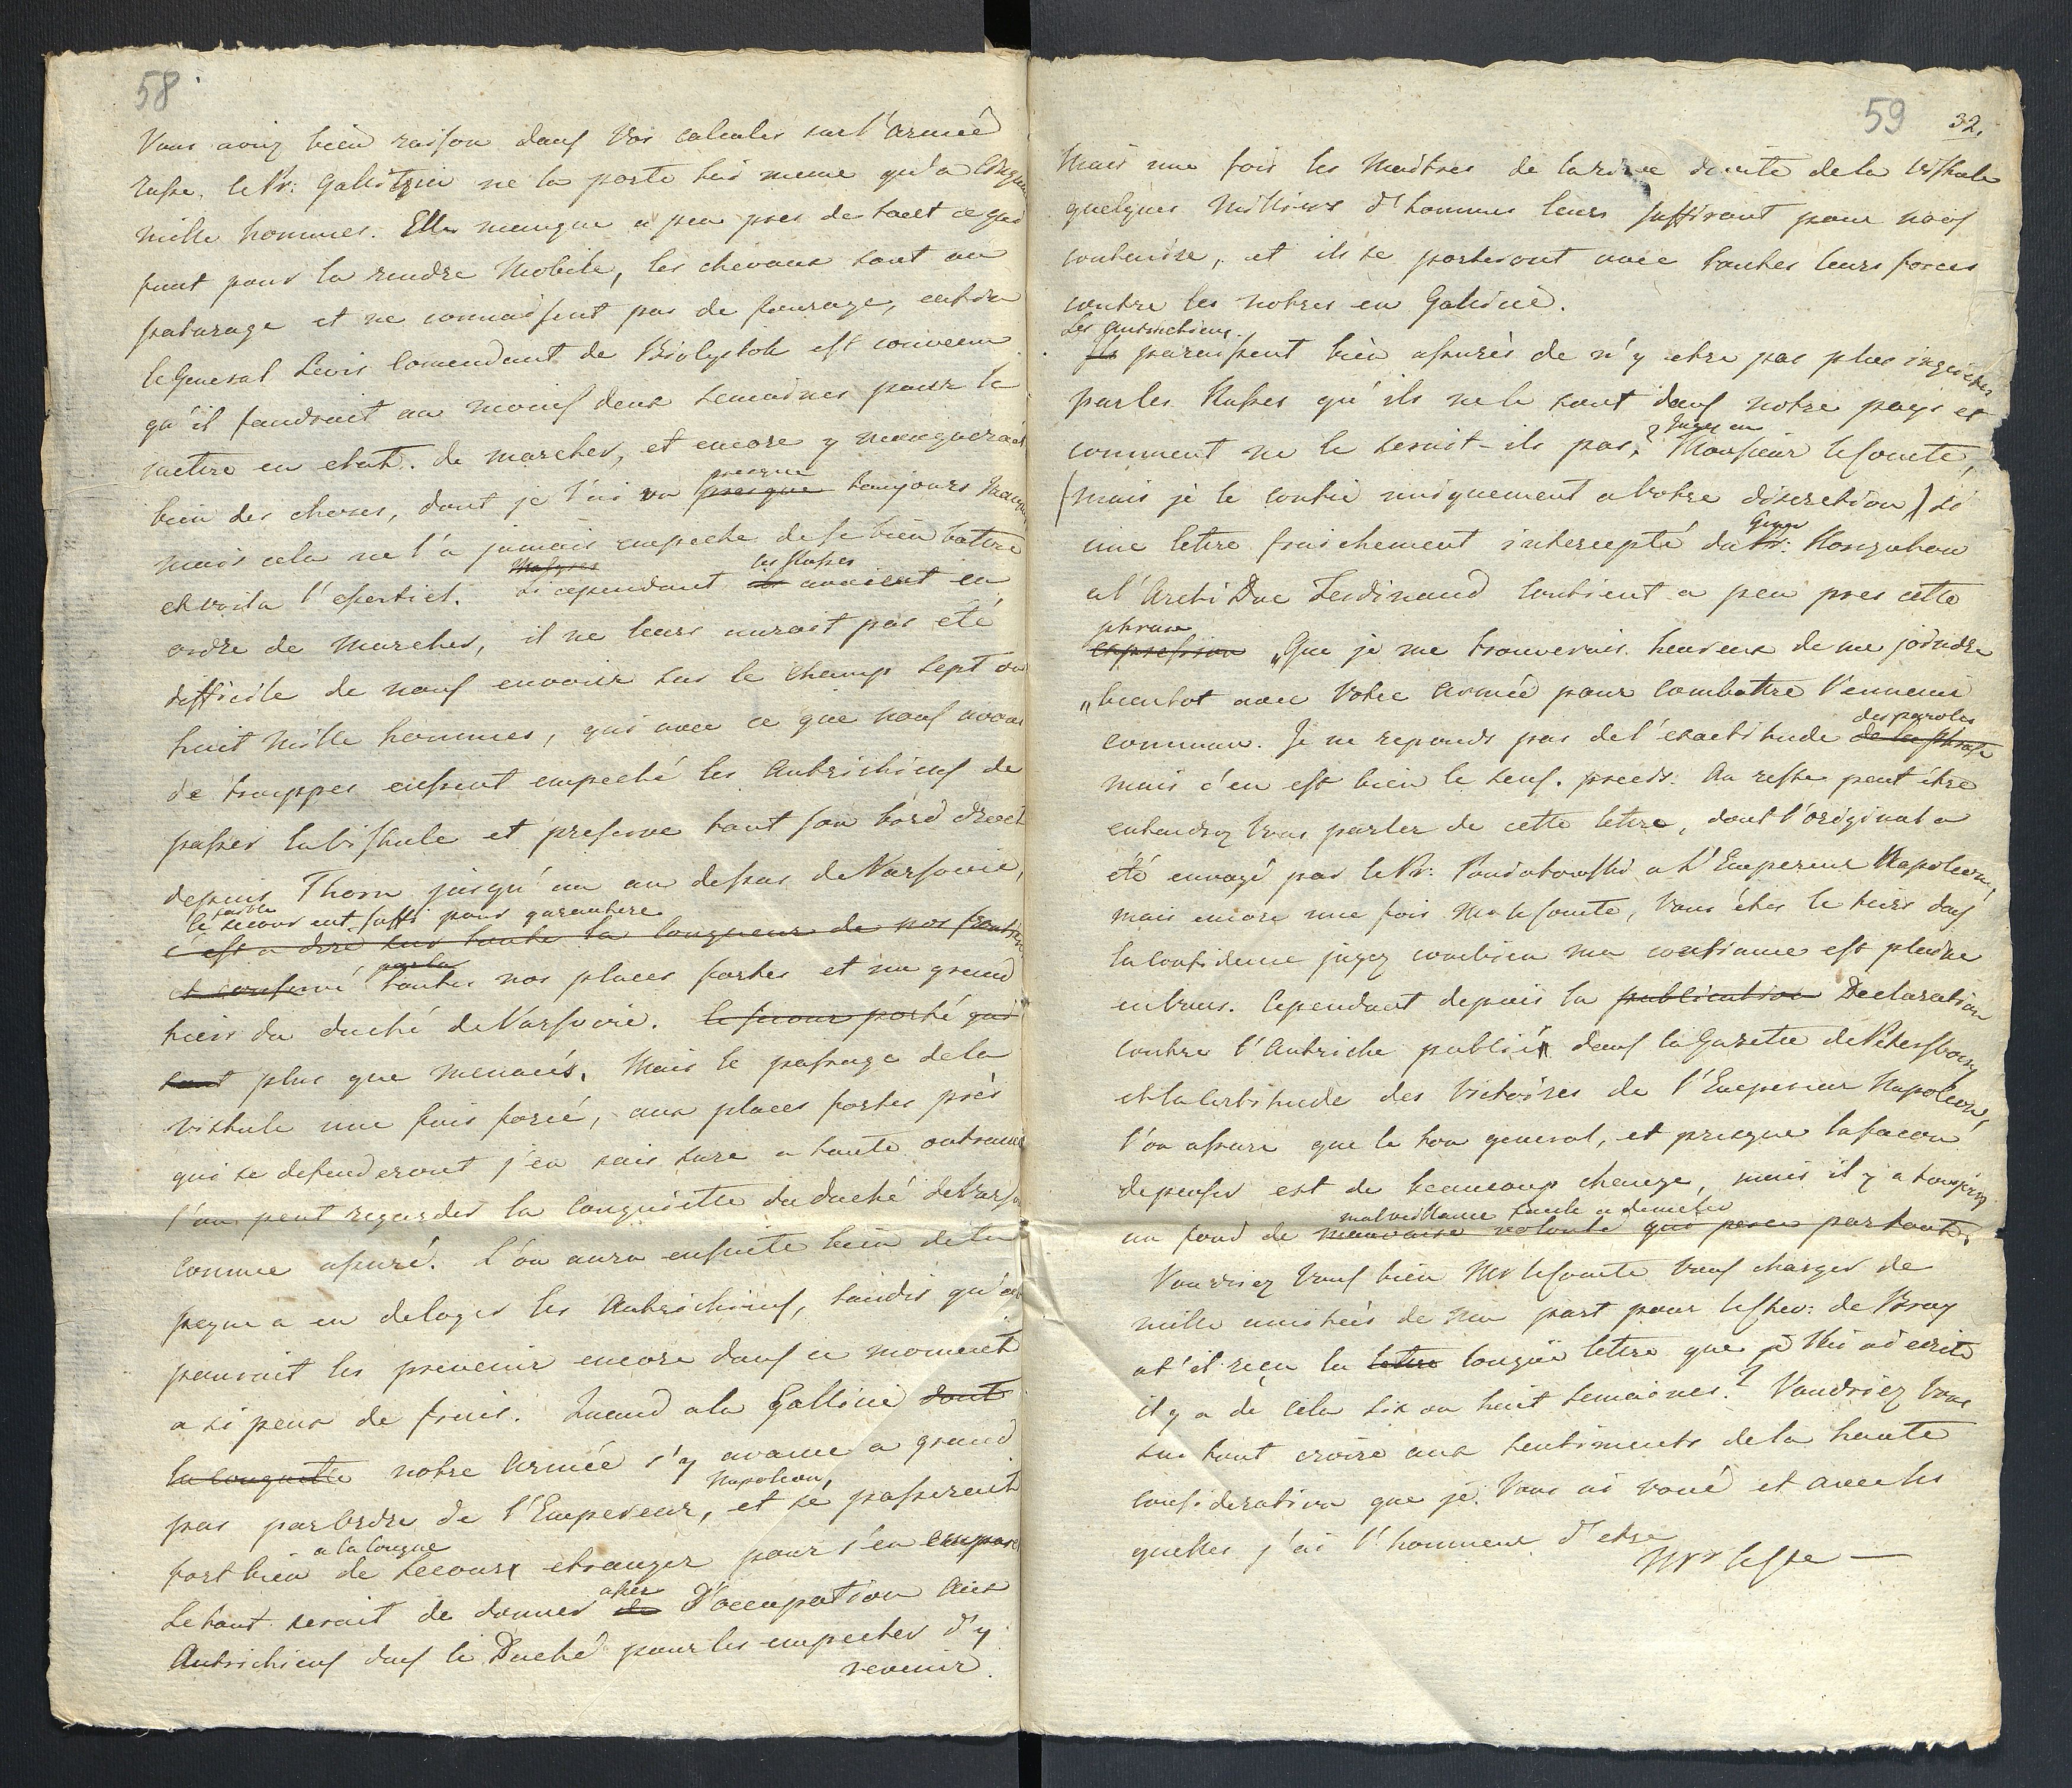 58
Vous aviez bien raison dans Vos calculs sur l'armée
russe. le Pr: Galitzin ne la porte lui meme qu'a Cinquante
mille hommes. Elle manque a peu pres de tout ce qui
faut pour la rendre Mobile, les chevaux sont au
paturage et ne connaissent pas de fourage, enfin
le General Levis Comendant de Biolystok est convenu
qu'il faudroit au moins deux semaines pour la
metre en etat. de marcher, et encore y manqueroit
bien des choses, dont je l'ai vu presque presque toujours manquer
mais cela ne l'a jamais empeche de se bien battre
et voila l'essentiel. Si cependant les Russes avoient eu
ordre de Marcher, il ne leurs auroit pas été
difficile de nous envoier sur le champ sept ou
huit mille hommes, qui avec ce que nous avons
de trouppes eussent empeché les Autrichiens de
passer la Vistule et preserve tout son bord droit
depuis Thorn jusqu'au au dessus de Varsovie,
le faible secour eut suffi pour garantire
c'est a dire sur toute la longueur de nos frontieres
et conservé par la toutes nos places fortes et un grand
tiers du duché de Varsovie. le secour porté qui
sont plus que menacés. Mais le passage de la
Vistule une fois forcé, aux places fortes près
qui se defenderont j'en suis sure a toute outrance
l'on peut regarder la Conquette du duché de Varsovie
comme assuré. L'on aura ensuite bien de la
peyne a en deloger les Autrichiens, tandis qu'on
pouroit les prevenir encore dans ce moment
a si peux de frais. Quand a la Gallicie dont
la conquette notre Armée s'y avance a grand
pas par ordre de l'Empereur Napoleon, et se passeroit
fort bien a la longue de secours etranger pour s'en emparer
Le tout seroit de donner assez de D'occupation aux
Autrichiens dans le Duché pour les empecher d'y
revenir.
59
32.
Mais une fois les Maitres de la rive droite de la Vistule
quelques Milliers d'hommes leurs suffiront pour nous
contenire, et ils se porteront avec toutes leurs forces
contre les notres en Galicie.
Les Autrichiens
Ils paroissent bien assurés de n'y etre pas plus inquietés
par les Russes qu'ils ne le sont dans notre pays et
comment ne le seroit-ils pas? jugez en Monsieur le Comte,
(mais je le confie uniquement a votre discretion) Si
une letre fraichement intercepté du Pr: Gorczakow
a l'Archi Duc Ferdinand Contient a peu pres cette
phrase
expression „Que je me trouverais heureux de me joindre
„bientot avec Votre Armée pour Combattre l'ennemi
commun. Je ne reponds pas de l'exactitude des paroles de la phrase
mais c'en est bien le sens. precis. Au reste peut être
entendrez Vous parler de cette letre, dont l'original a
été envoyé par le Pr: Poniatowski a L'Empereur Napoleon,
mais encore une fois Mr le Comte, Vous êtes le tiers dans
la Confidence jugez combien ma confiance est pleine
en Vous. Cependant depuis la publication Declaration
Contre l'Autriche publiée dans la Gazette de Petersbourg
et la certitude des Victoires de l'Empereur Napoleon,
l'on assure que le ton general, et presque la facon
de penser est de beaucoup change, mais il y a toujours
un fond de mauvaise volonté qui perce par tout. malveillance
Voudriez Vous bien Mr le Comte Vous charger de
mille amitiés de ma part pour le Chev: de Bray
at'il reçu la letre longue letre que je lui ai ecrite
il y a de cela six ou huit semaines? Voudriez Vous
sur tout croire aux sentiments de la haute
Consideration que je Vous ai voué et avec les
quelles j'ai l'honneur d'etre
Mr le Cte —